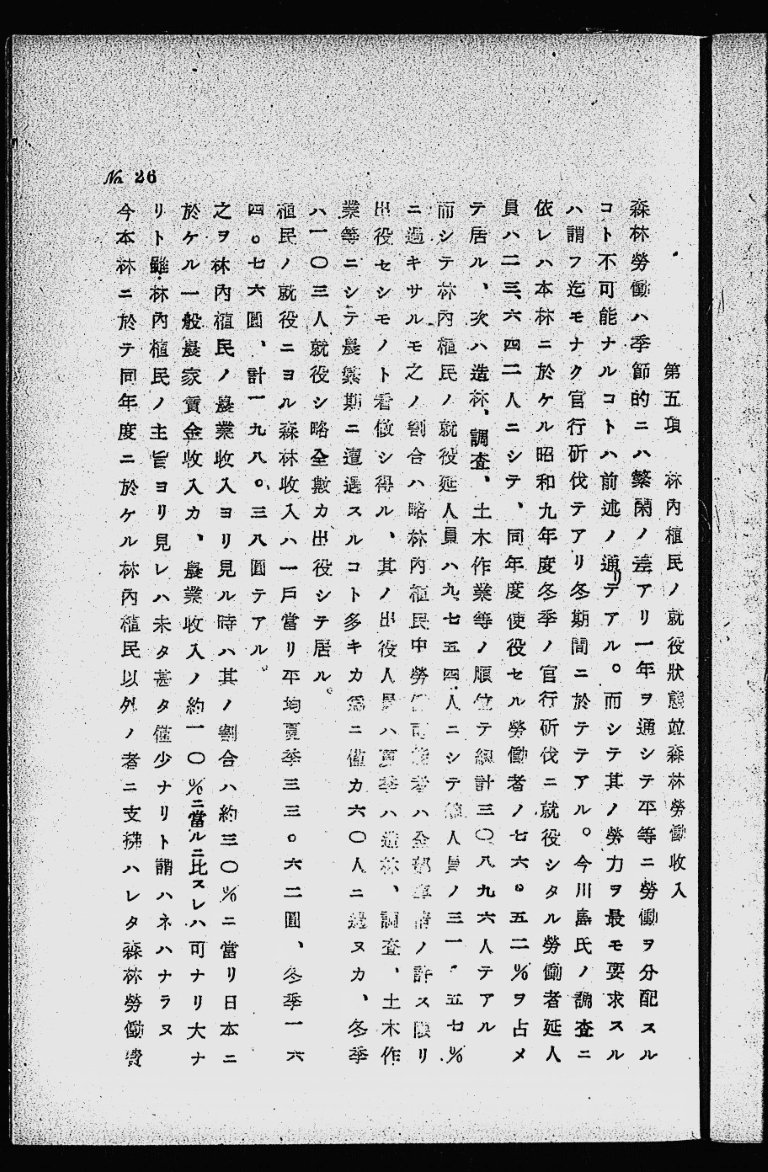 № 26
第五項　林內植民ノ就役狀態竝森林勞働收入
森林勞働ハ季節的ニハ繁閑ノ差アリ一年ヲ通シテ平等ニ勞働ヲ分配スル
コト不可能ナルコトハ前述ノ通リデアル。而シテ其ノ勞力ヲ最モ要求スル
ハ謂フ迄モナク官行斫伐テアリ冬期間ニ於テテアル。今川島氏ノ調査ニ
依レハ本林ニ於ケル昭和九年度冬季ノ官行斫伐ニ就役シタル勞働者延人
員ハ二三、六四二人ニシテ、同年度使役セル勞働者ノ七六。五二%ヲ占メ
テ居ル、次ハ造林、調査、土木作業等ノ順位テ總計三〇八九六人テアル
而シテ林內植民ノ就役延人員ハ九、七五四人ニシテ總人員ノ三一．五七%
ニ過キサルモ之ノ割合ハ略林內植民中勞働可能者ハ全部事情ノ許ス限リ
出役セシモノト看做シ得ル、其ノ出役人員ハ夏季ハ造林、調査、土木作
業等ニシテ農繁期ニ遭遇スルコト多キカ爲ニ僅カ六〇人ニ過ヌカ、冬季
ハ一〇三人就役シ略全數カ出役シテ居ル。
植民ノ就役ニヨル森林收入ハ一戶當リ平均夏季三三。六二圓、冬季一六
四。七六圓、計一九八。三八圓テアル。
之ヲ林內植民ノ農業收入ヨリ見ル時ハ其ノ割合ハ約三〇%ニ當リ日本ニ
於ケル一般農家賃金收入カ、農業收入ノ約一〇%ニ當ルニ比スレハ可ナリ大ナ
リト雖林內植民ノ主旨ヨリ見レハ未タ甚タ僅少ナリト謂ハネハナラヌ
今本林ニ於テ同年度ニ於ケル林內植民以外ノ者ニ支拂ハレタ森林勞働賃